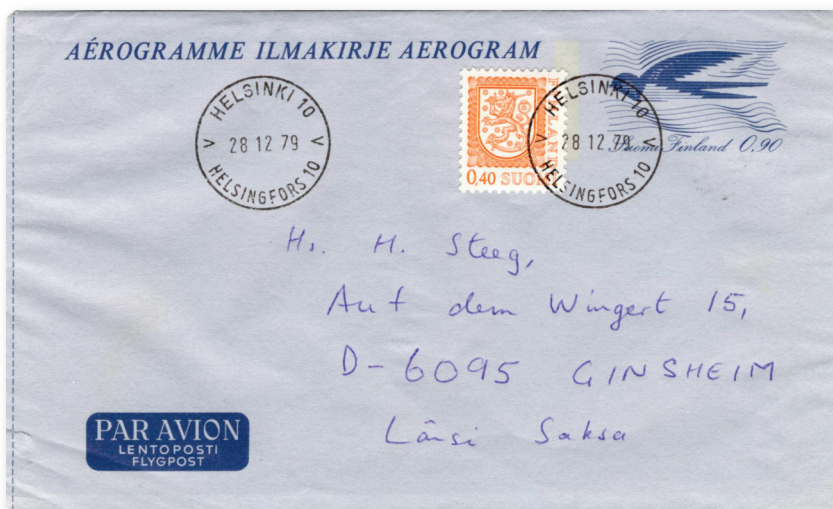 AÉROGRAMME ILMAKIRJE AEROGRAM
HELSINKI 10
V 28 12 79 V
HELSINGFORS 10
0,40 SUOMI
FINLAND
HELSINKI 10
V 28 12 79 V
HELSINGFORS 10
Suomi Finland 0,90
Hs. H. Steeg,
Auf dem Wingert 15,
D-6095 GINSHEIM
Länsi Saksa
PAR AVION
LENTOPOSTI
FLYGPOST